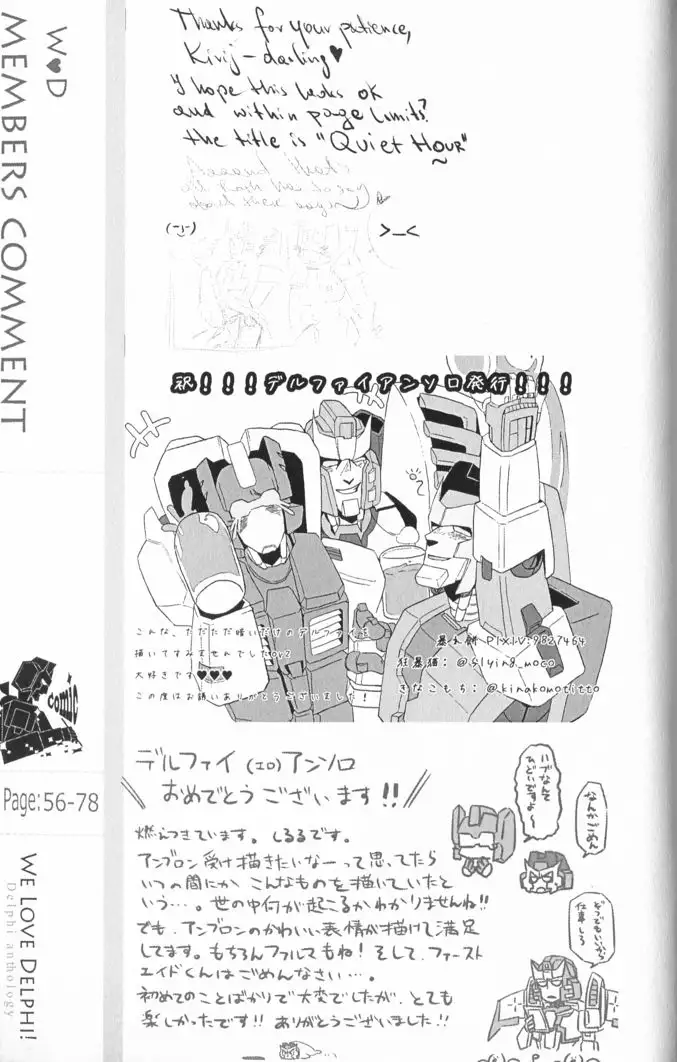 W♥D
MEMBERS COMMENT
Thanks for your patience,
Kirij-darling♥
I hope this looks ok
and within page limits?
the title is "Quiet Hour"
(-_-)
>_<
祝！！！デルファイアンソロ発行！！！
こんな、ただただ暗いだけのデルファイを
描いてすみませんでしたorz
大好きです♥♥♥
この度はお誘いありがとうございました！
PIXIV:9827464
狂暴猫：@flying_moco
きなこもち：@kinakomotitto
comic
Page:56-78
デルファイ(エロ)アンソロ
おめでとうございます!!
燃えつきています。しるるです。
アンブロン受け描きたいなーって思ってたら
いつの間にか こんなものを描いていたと
いう…。世の中何が起こるかわかりませんね!!
でも、アンブロンのかわいい表情が描けて満足
してます。もちろんファルマもね! そして、ファースト
エイドくんはごめんなさい…。
初めてのことばかりで大変でしたが、とても
楽しかったです!! ありがとうございました!!
ハブなんて
ひどいですよ〜
なんかごめん
どうでもいいから
仕事しろ
WE LOVE DELPHI!
Delphi anthology